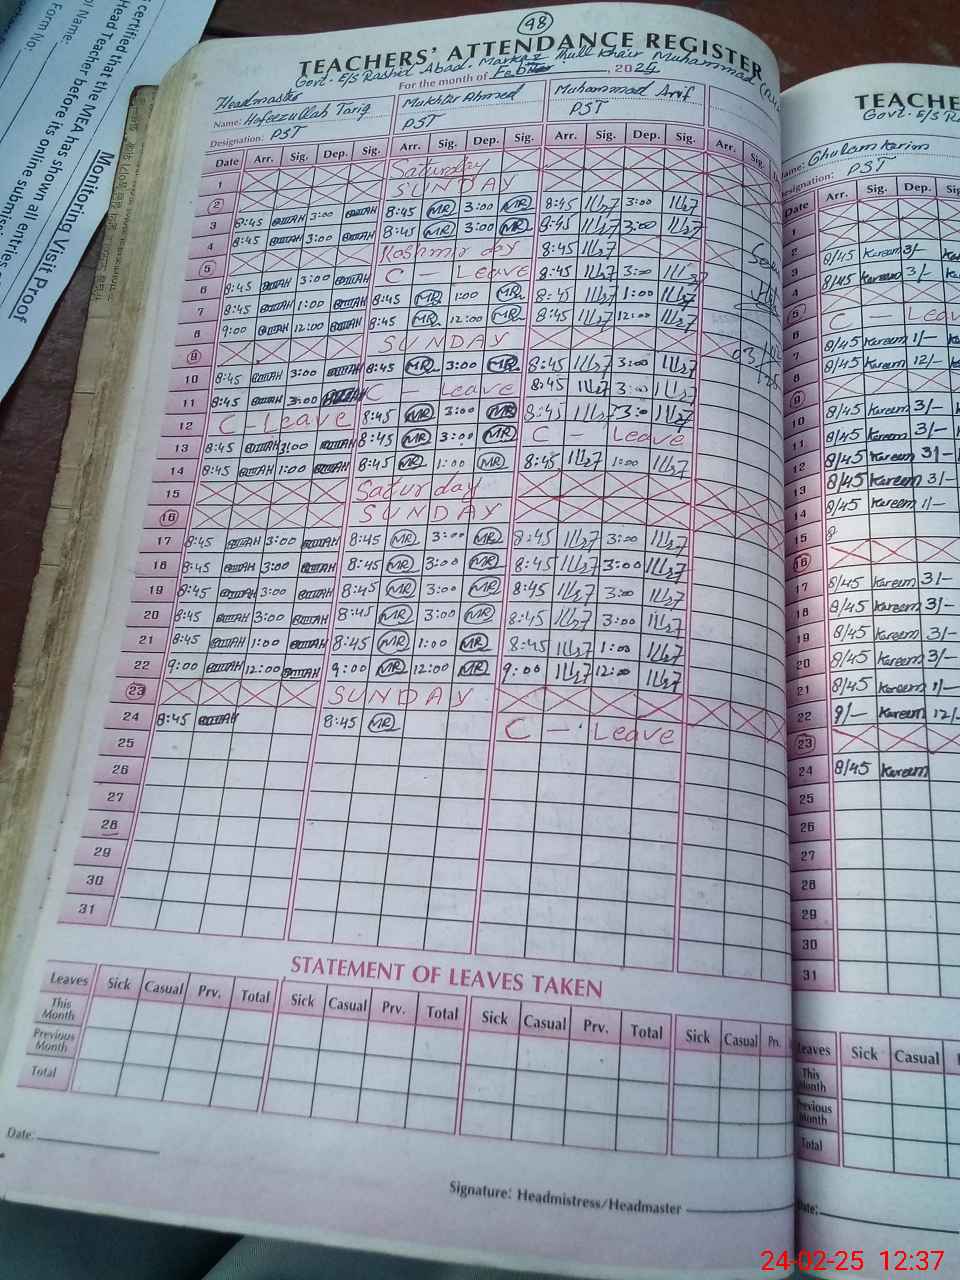 48
TEACHERS' ATTENDANCE REGISTER
Govt. E/S Rashid Abad Markaz Thull Khair Muhammad
For the month of Feb , 2025
Headmaster
Name: Hafeezullah Tariq Mukhtar Ahmed Muhammad Arif
Designation: PST PST PST
Date Arr. Sig. Dep. Sig. Arr. Sig. Dep. Sig. Arr. Sig. Dep. Sig. Arr. Sig.
1 Saturday
2 SUNDAY
3 8:45 3:00 8:45 MR 3:00 MR 8:45 3:00
4 8:45 3:00 8:45 MR 3:00 MR 8:45 3:00
5 Kashmir day 8:45
6 8:45 3:00 C - Leave 8:45 3:00
7 8:45 1:00 8:45 MR 1:00 MR 8:45 1:00
8 9:00 12:00 8:45 MR 12:00 MR 8:45 12:00
9 SUNDAY
10 8:45 3:00 8:45 MR 3:00 MR 8:45 3:00
11 8:45 3:00 C - Leave 8:45 3:00
12 C - Leave 8:45 MR 3:00 MR 8:45 3:00
13 8:45 3:00 8:45 MR 3:00 MR C - Leave
14 8:45 1:00 8:45 MR 1:00 MR 8:45 1:00
15 Saturday
16 SUNDAY
17 8:45 3:00 8:45 MR 3:00 MR 8:45 3:00
18 8:45 3:00 8:45 MR 3:00 MR 8:45 3:00
19 8:45 3:00 8:45 MR 3:00 MR 8:45 3:00
20 8:45 3:00 8:45 MR 3:00 MR 8:45 3:00
21 8:45 1:00 8:45 MR 1:00 MR 8:45 1:00
22 9:00 12:00 9:00 MR 12:00 MR 9:00 12:00
23 SUNDAY
24 8:45 8:45 MR C - Leave
25
26
27
28
29
30
31
STATEMENT OF LEAVES TAKEN
Leaves Sick Casual Prv. Total Sick Casual Prv. Total Sick Casual Prv. Total Sick Casual Prv.
This Month
Previous Month
Total
Date:
Signature: Headmistress/Headmaster
TEACHE
Govt. E/S
Name: Ghulam Karim
Designation: PST
Date Arr. Sig. Dep.
1
2 8/45 Kareem 3/-
3 8/45 Kareem 3/-
4
5 C - Leav
6 8/45 Kareem 1/-
7 8/45 Kareem 12/-
8
9
10 8/45 Kareem 3/-
11 8/45 Kareem 3/-
12 8/45 Kareem 3/-
13 8/45 Kareem 3/-
14 8/45 Kareem 1/-
15 8
16
17 8/45 Kareem 3/-
18 8/45 Kareem 3/-
19 8/45 Kareem 3/-
20 8/45 Kareem 3/-
21 8/45 Kareem 1/-
22 9/- Kareem 12/-
23
24 8/45 Kareem
25
26
27
28
29
30
31
Leaves Sick Casual
This Month
Previous Month
Total
Date:
certified that the MEA has shown all entries
Head Teacher before its online submiss
Monitoring Visit Proof
ol Name:
Form No:
24-02-25 12:37